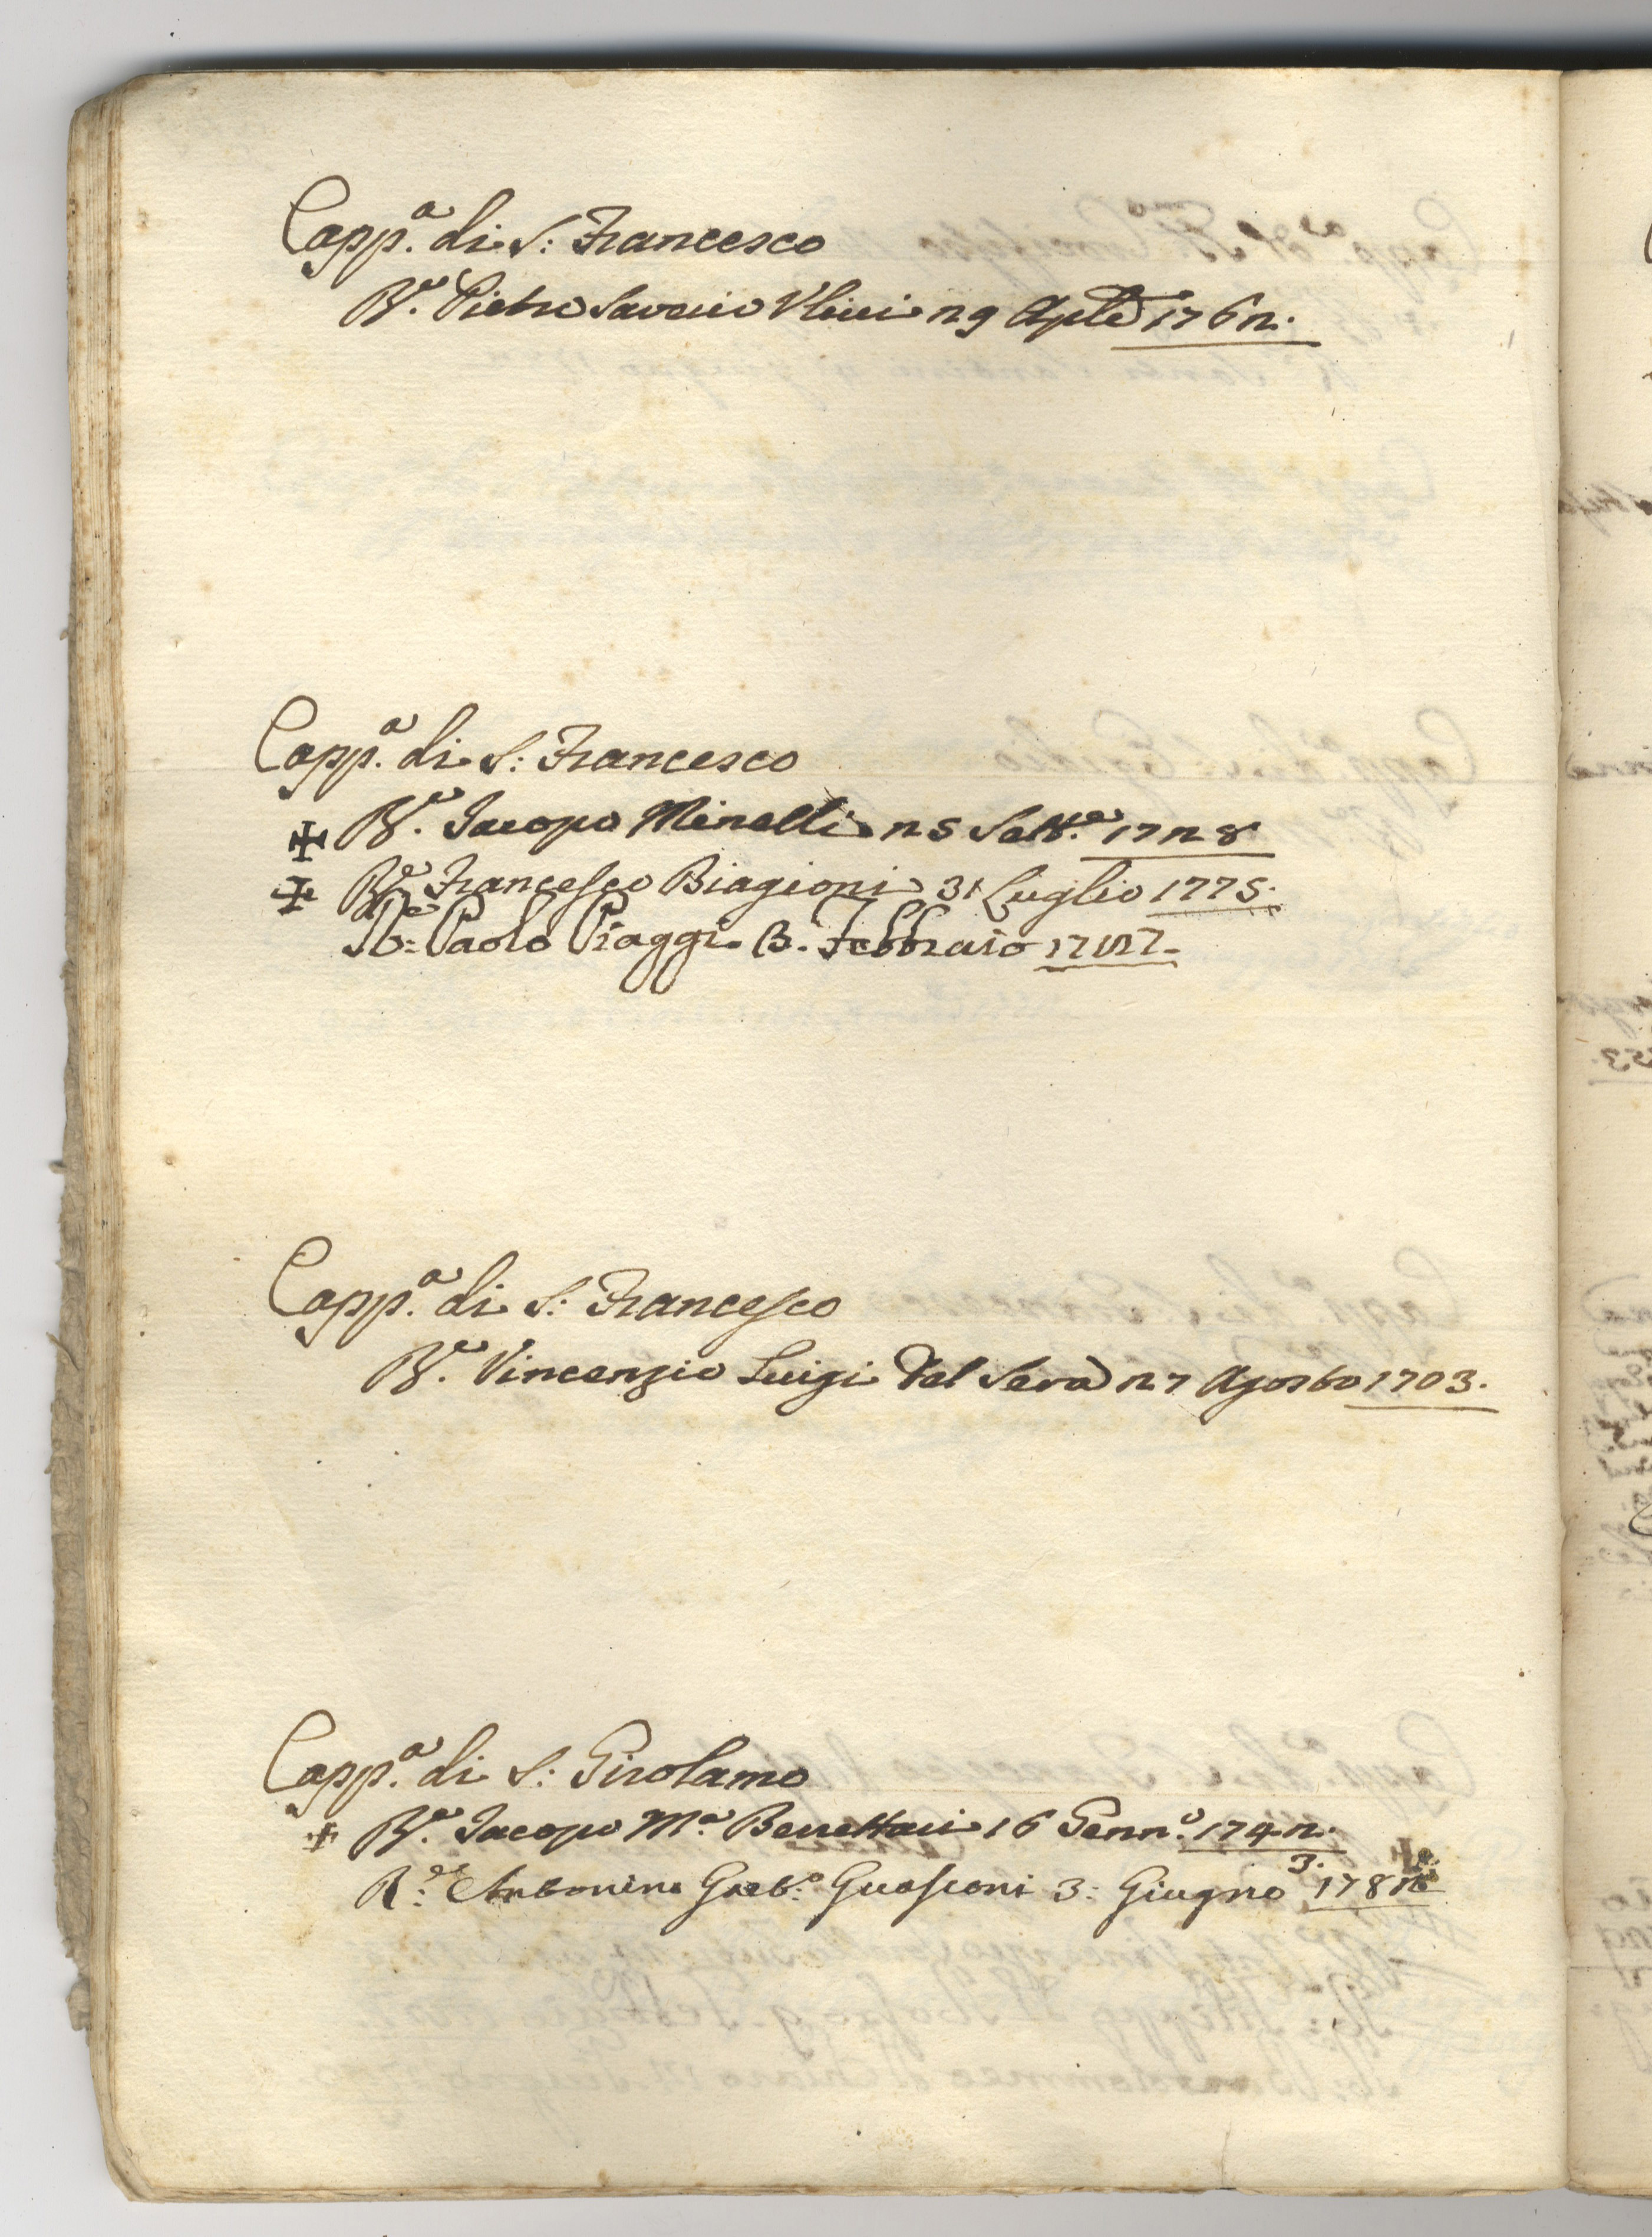 Capp.ª di S: Francesco
R.e Pietro Saverio Ulivi 29 Aple 1762.
Capp.ª di S: Francesco
✠ R.e Jacopo Minelli 25 Sett.e 1728
✠ R.e Francesco Biagioni 31 Luglio 1775.
R:e Paolo Piaggi 3. Febbraio
Capp.ª di S: Francesco
R.e Vincenzio Luigi Del Sera 27 Agosto 1703.
Capp.ª di S: Girolamo
✠ R.e Jacopo M.ª Berrettari 16 Genn.o 1742.
R:e Antonino Guasconi 3: Giugno 178